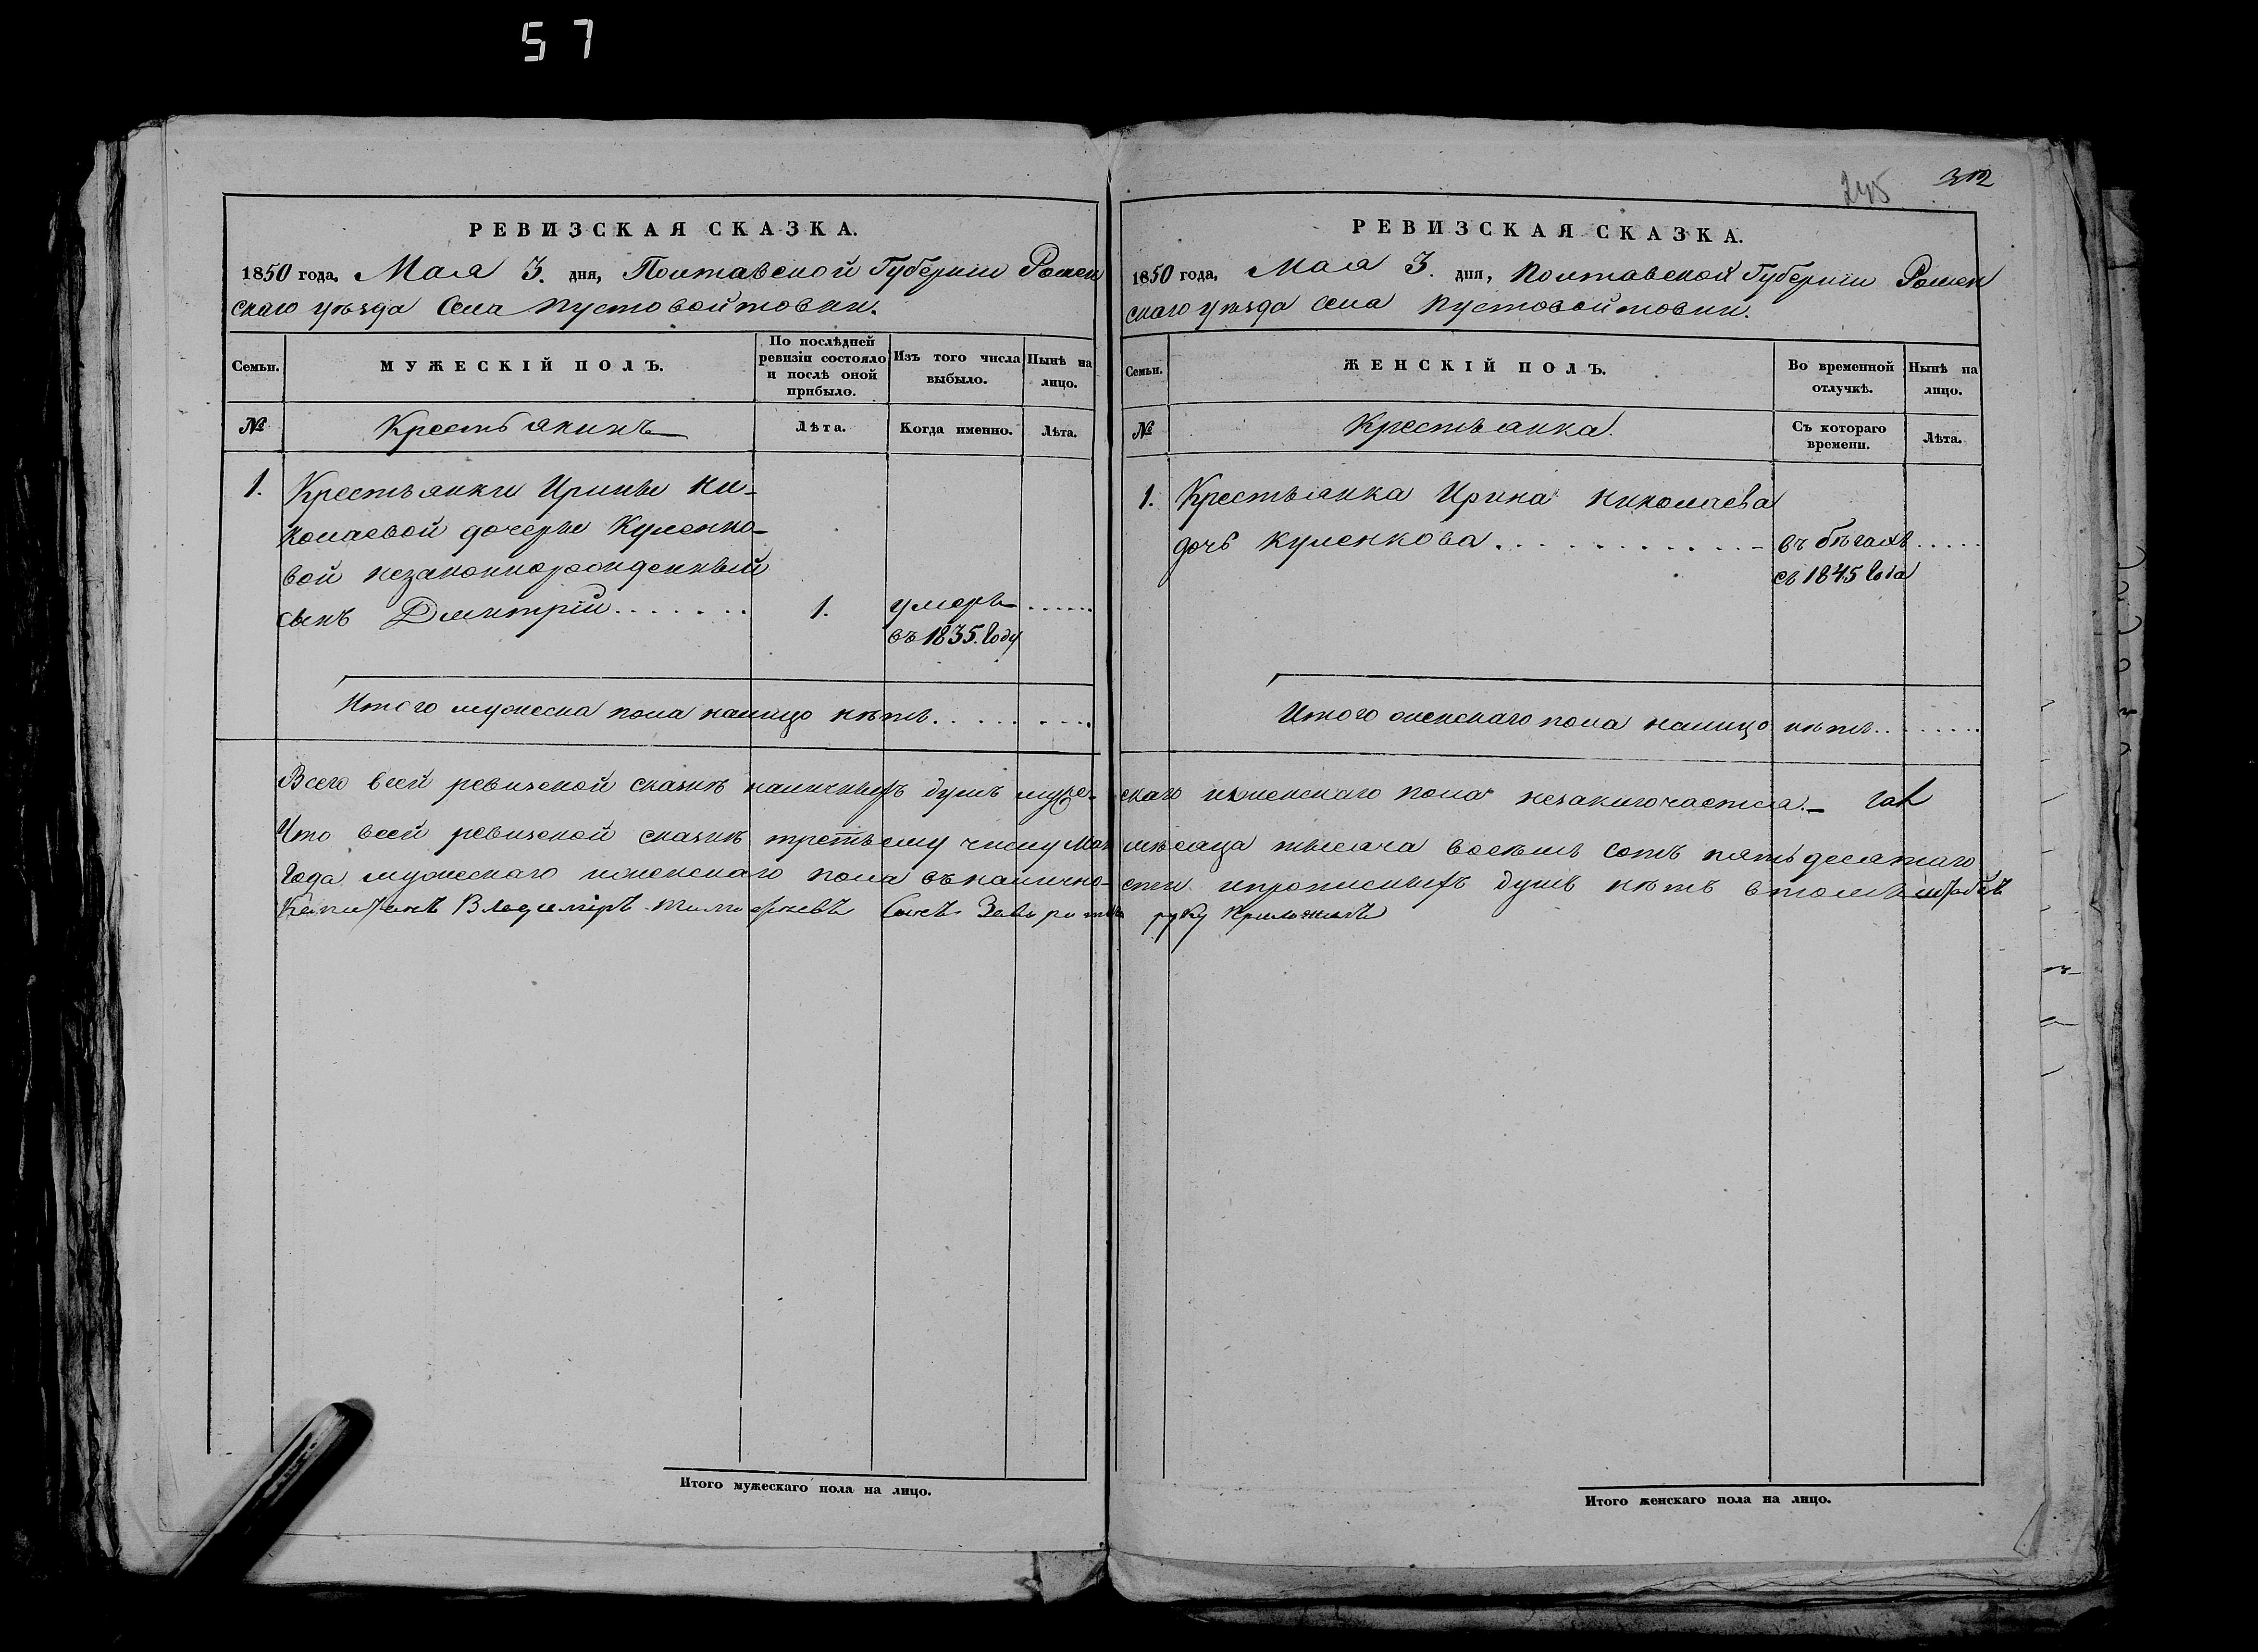 57
245 312
РЕВИЗСКАЯ СКАЗКА.
1850 года, Мая 3. дня, Полтавской Губернiи Ромен
скаго уѣзда Села Пустовойтовки.
Семьи.
МУЖЕСКІЙ ПОЛЪ.
По послѣдней ревизіи состояло и послѣ оной прибыло.
Изъ того числа выбыло.
Нынѣ на лицо.
№
Крестьянинъ
Лѣта.
Когда именно.
Лѣта.
1. Крестьянки Ирины Ни-
колаевой дочери Куленко-
вой незаконнорожденный
сынъ Дмитрій....... 1. умеръ ......
въ 1835. Году
Итого мужеска пола налицо нѣтъ.........
РЕВИЗСКАЯ СКАЗКА.
1850 года, Мая 3. дня, Полтавской Губернiи Ромен
скаго уѣзда села Пустовойтовки.
Семьи.
ЖЕНСКІЙ ПОЛЪ.
Во временной отлучкѣ.
Нынѣ на лицо.
№
Крестьянка.
Съ котораго времени.
Лѣта.
1. Крестьянка Ирина Николаева
дочь Куленкова............ въ бѣгахъ.....
съ 1845 Года
Итого женскаго пола налицо нѣтъ........
Всего всей ревизской сказкѣ наличныхъ душъ муже- скаго иженскаго пола незаключается.
Что всей ревизской сказкѣ третьему числу Мая мѣсяца тысяча восемь сотъ пятьдесятаго
Года мужескаго иженскаго пола въналично- сти ипрописныхъ душъ нѣтъ втомъ
Капитанъ Владимiръ сынъ руку приложилъ
Итого мужескаго пола на лицо.
Итого женскаго пола на лицо.